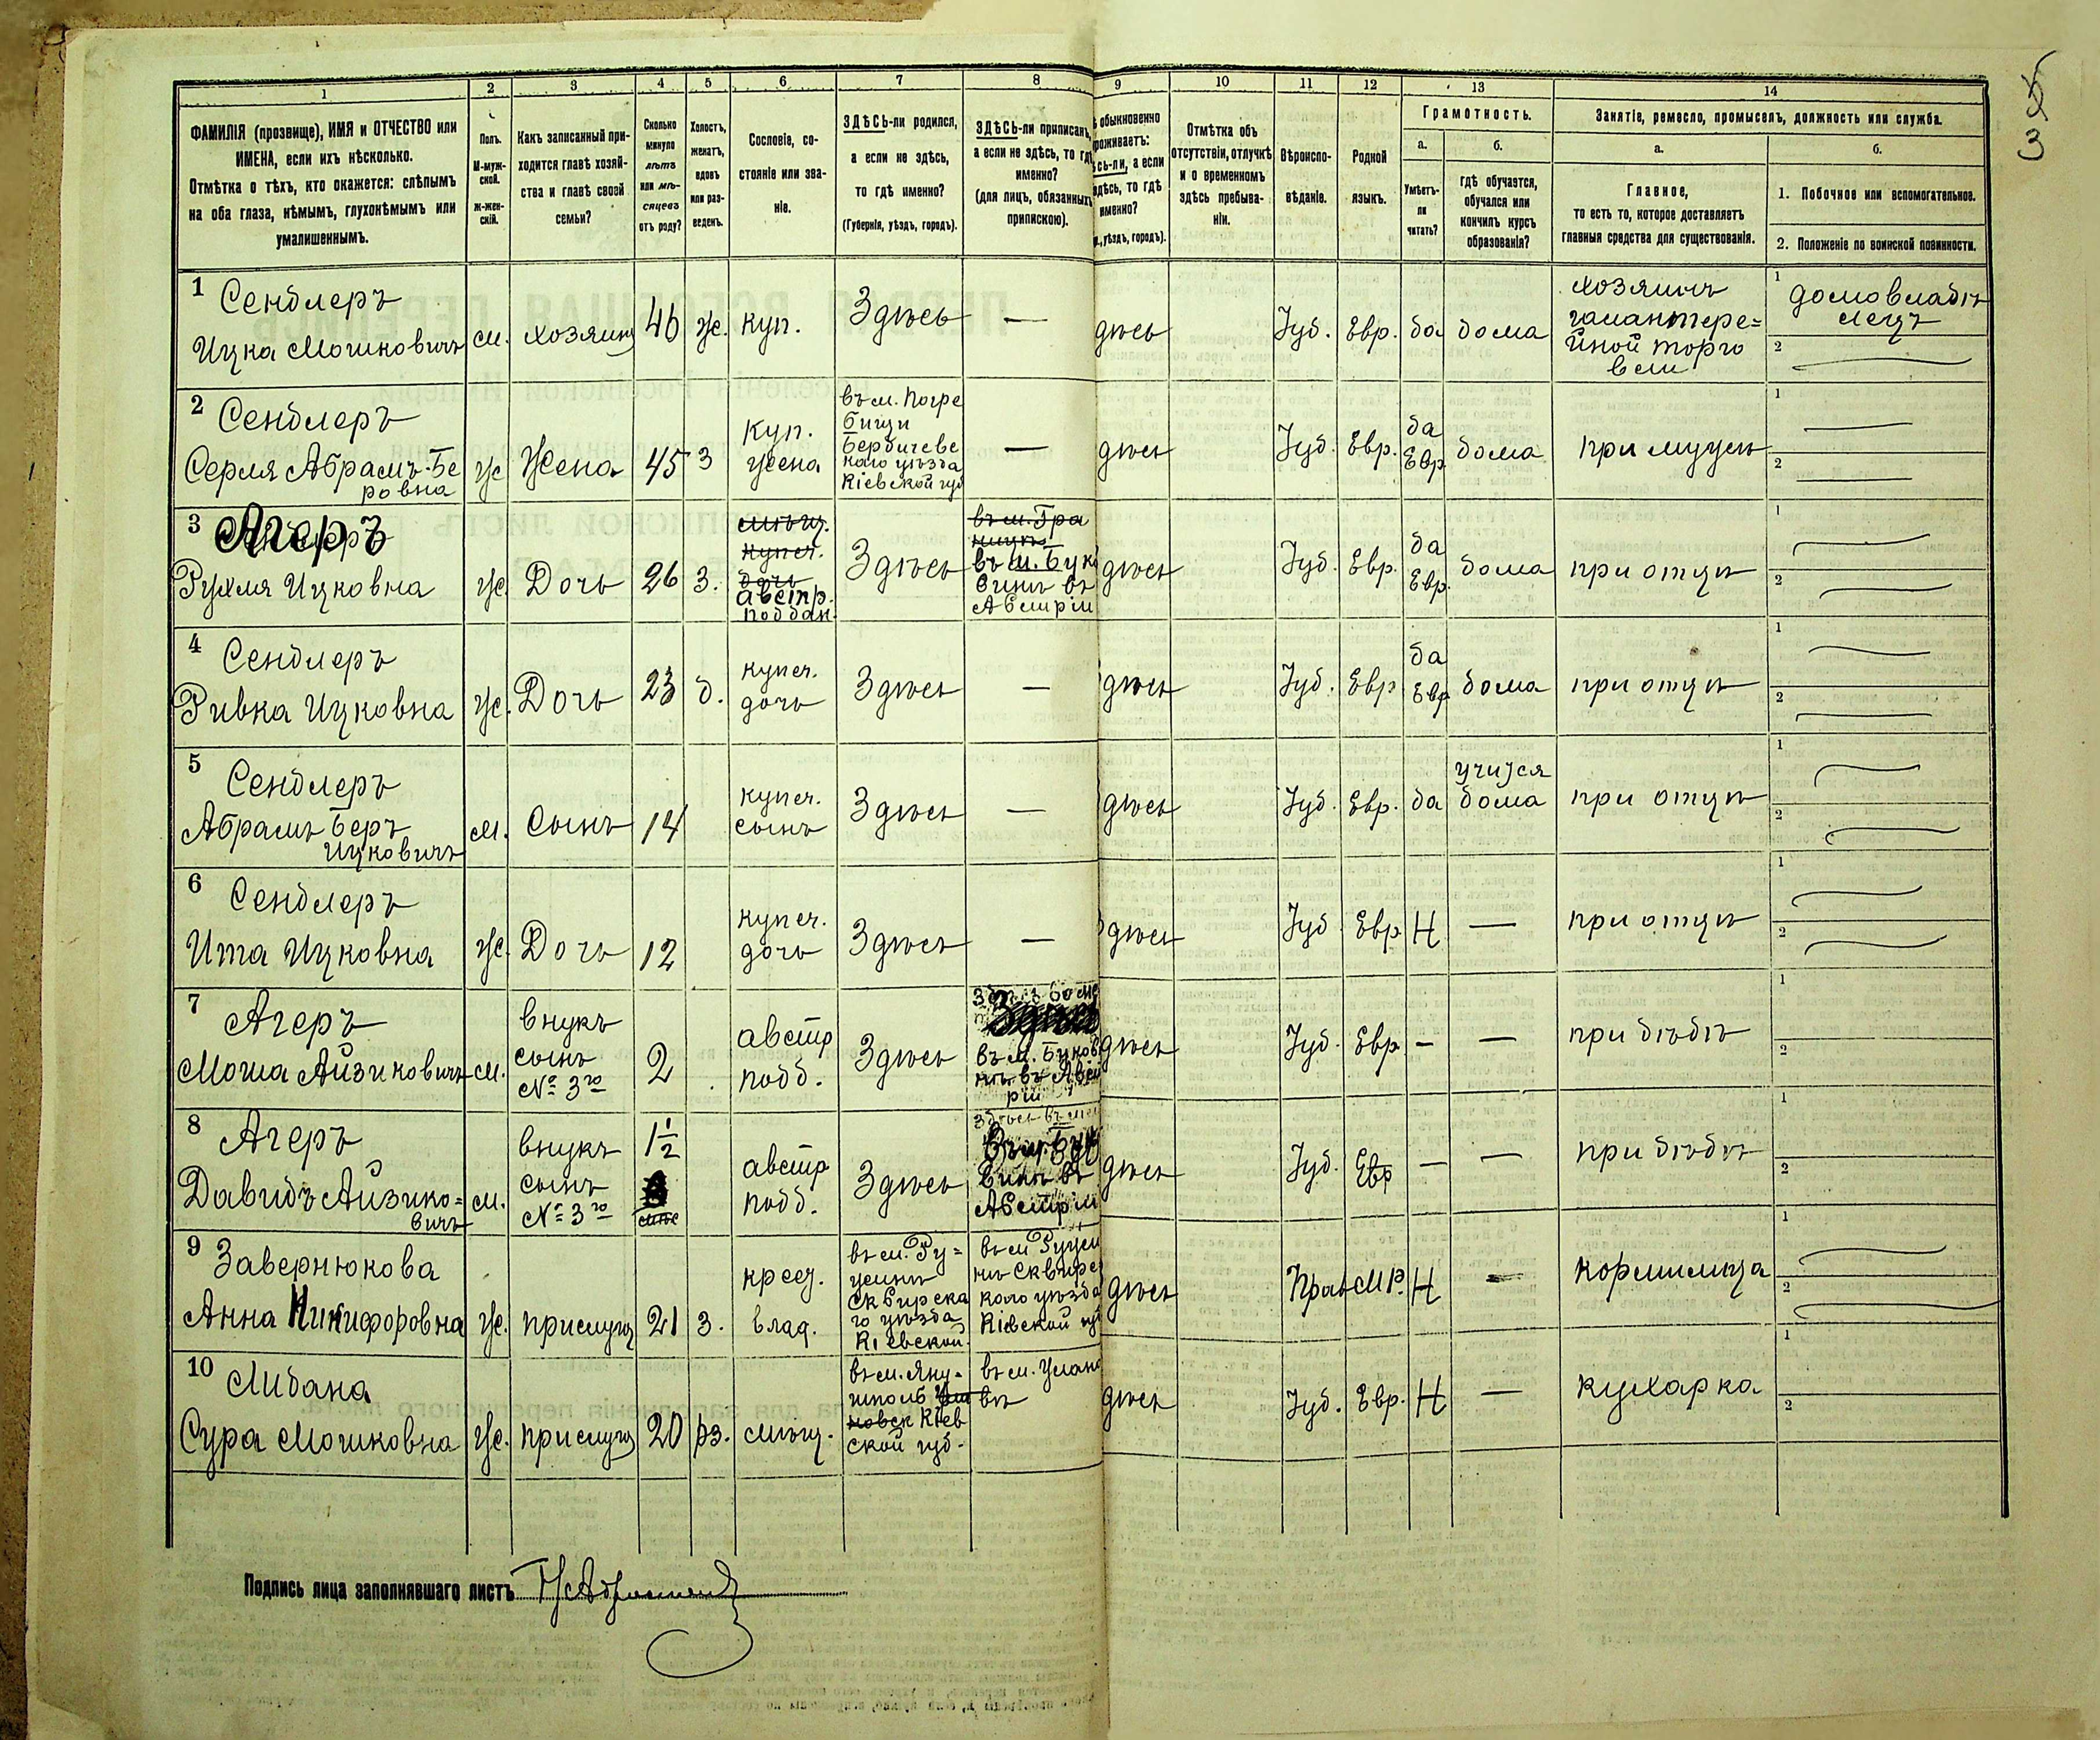 1 2 3 4 5 6 7 8 9 10 11 12 13 14
ФАМИЛІЯ (прозвище), ИМЯ и ОТЧЕСТВО или
ИМЕНА, если ихъ нѣсколько.
Отмѣтка о тѣхъ, кто окажется: слѣпымъ
на оба глаза, нѣмымъ, глухонѣмымъ или
умалишеннымъ.
Полъ.
М-муж-
ской.
ж-жен-
скій.
Какъ записанный при-
ходится главѣ хозяй-
ства и главѣ своей
семьи?
Сколько
минуло
лѣтъ
или мѣ-
сяцевъ
отъ роду?
Холостъ,
женатъ,
вдовъ
или раз-
веденъ.
Сословіе, со-
стояніе или зва-
ніе.
ЗДѢСЬ-ли родился,
а если не здѣсь,
то гдѣ именно?
(Губернія, уѣздъ, городъ).
ЗДѢСЬ-ли приписанъ,
а если не здѣсь, то гдѣ
именно?
(для лицъ, обязанныхъ
припискою).
обыкновенно
роживаетъ:
сь-ли, а если
здѣсь, то гдѣ
именно?
уѣздъ, городъ).
Отмѣтка объ
отсутствіи, отлучкѣ
и о временномъ
здѣсь пребыва-
ніи.
Вѣроиспо-
вѣданіе.
Родной
языкъ.
Грамотность.
а.
Умѣетъ-
ли
читать?
б.
гдѣ обучается,
обучался или
кончилъ курсъ
образованія?
Занятіе, ремесло, промыселъ, должность или служба.
а.
Главное,
то есть то, которое доставляетъ
главныя средства для существованія.
б.
1. Побочное или вспомогательное.
2. Положеніе по воинской повинности.
3
1
Сендлеръ
Ицка Мошковичъ
м.
хозяинъ
46
ж.
куп.
Здѣсь
—
дѣсь
Іуд.
Евр.
да
дома
хозяинъ
галантере=
йной торго
вли
1
домовладѣ
лецъ
2
2
Сендлеръ
Серля Абрамъ-Бе
ровна
ж
Жена
45
з
куп.
жена
въ м. Погре
бищи
Бердичевс
каго уѣзда
Кіевской губ
—
дѣсь
Іуд.
Евр.
да
Евр
дома
при мужѣ
1
2
3
Агеръ
Рухля Ицковна
ж.
Дочь
26
з.
мѣщ.
купеч.
дочь
австр.
поддан.
Здѣсь
въ м. Гра
въ м. Буко
винѣ въ
Австріи
дѣсь
Іуд.
Евр.
да
Евр.
дома
при отцѣ
1
2
4
Сендлеръ
Ривка Ицковна
ж.
Дочь
23
д.
купеч.
дочь
Здѣсь
—
дѣсь
Іуд.
Евр
да
Евр
дома
при отцѣ
1
2
5
Сендлеръ
Абрамъ Беръ
Ицковичъ
м.
Сынъ
14
купеч.
сынъ
Здѣсь
—
дѣсь
Іуд.
Евр.
да
учится
дома
при отцѣ
1
2
6
Сендлеръ
Ита Ицковна
ж.
Дочь
12
купеч.
дочь
Здѣсь
—
дѣсь
Іуд
Евр
Н
—
при отцѣ
1
2
7
Агеръ
Моша Айзиковичъ
м.
внукъ
сынъ
№ 3го
2
австр
подд.
Здѣсь
въ м. Буков
нѣ въ Авст
ріи
дѣсь
Іуд.
Евр
—
—
при дѣдѣ
1
2
8
Агеръ
Давидъ Айзико=
вичъ
м.
внукъ
сынъ
№ 3го
1½
австр
подд.
Здѣсь
винѣ въ
Австріи
дѣсь
Іуд.
Евр
—
—
при дѣдѣ
1
2
9
Завернюкова
Анна Никифоровна
ж.
прислуга
21
з.
крест.
влад.
въ м. Ру=
жинѣ
Сквирска
го уѣзда
Кіевской
въ м Ружи
нѣ Сквирс
каго уѣзда
Кіевской гу
дѣсь
Прав
МР.
Н
—
кормилица
1
2
10
Либана
Сура Мошковна
ж.
прислуга
20
рз.
мѣщ.
въ м. Яну-
шполѣ
Кіев
ской губ.
въ м. Улано
вѣ
дѣсь
Іуд.
Евр.
Н
—
кухарка
1
2
Подпись лица заполнявшаго листъ